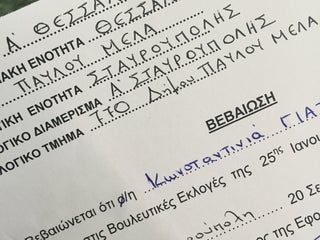 Α΄ ΘΕΣΣΑΛ
ΙΑΚΗ ΕΝΟΤΗΤΑ ΘΕΣΣΑΛ
ΠΑΥΛΟΥ ΜΕΛΑ
ΤΙΚΗ ΕΝΟΤΗΤΑ ΣΤΑΥΡΟΥΠΟΛΗΣ
ΛΟΓΙΚΟ ΔΙΑΜΕΡΙΣΜΑ Α΄ ΣΤΑΥΡΟΥΠΟΛΗΣ
ΛΟΓΙΚΟ ΤΜΗΜΑ 770 Δήμου ΠΑΥΛΟΥ ΜΕΛΑ
ΒΕΒΑΙΩΣΗ
Βεβαιώνεται ότι ο/η Κωνσταντινιά ΓΙΑΤ
στις Βουλευτικές Εκλογές της 25ης Ιανου
20 Σε
της Εφο